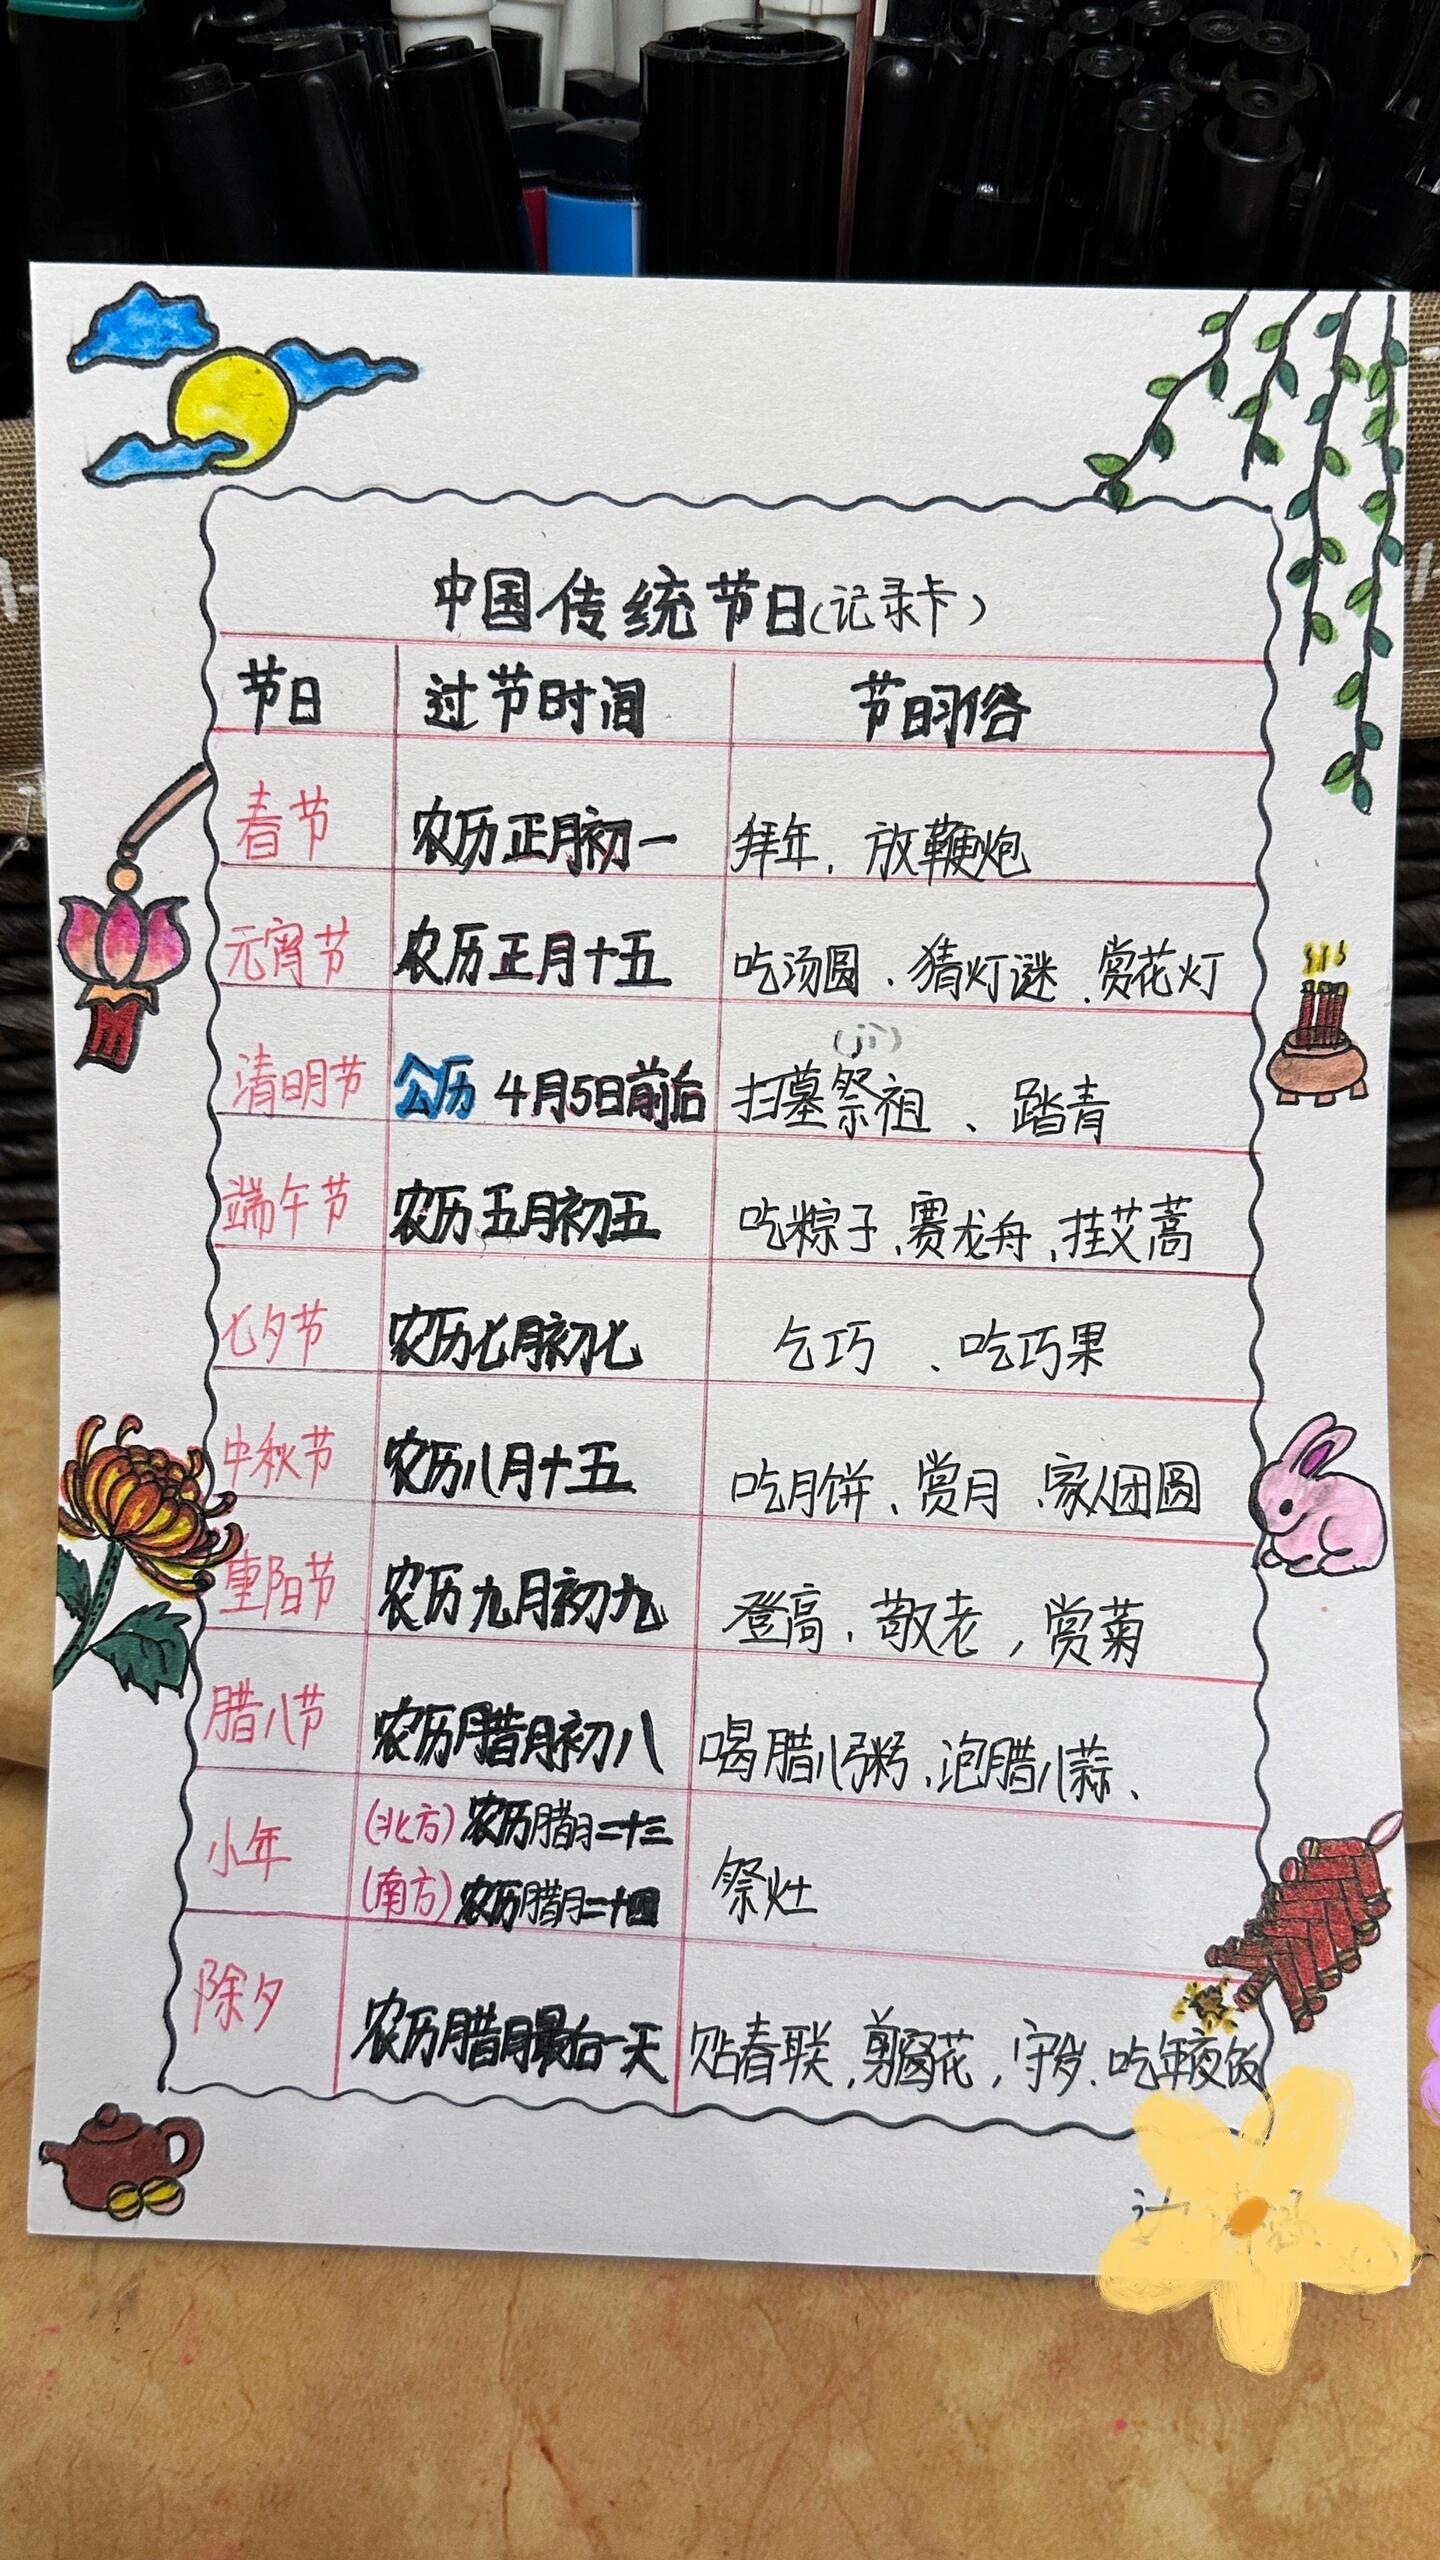 中国传统节日(记录卡)
节日 过节时间 节日习俗
春节 农历正月初一 拜年、放鞭炮
元宵节 农历正月十五 吃汤圆、猜灯谜、赏花灯
(jì)
清明节 公历 4月5日前后 扫墓祭祖、踏青
端午节 农历五月初五 吃粽子、赛龙舟、挂艾蒿
七夕节 农历七月初七 乞巧、吃巧果
中秋节 农历八月十五 吃月饼、赏月、家人团圆
重阳节 农历九月初九 登高、敬老,赏菊
腊八节 农历腊月初八 喝腊八粥、泡腊八蒜、
小年 (北方)农历腊月二十三 祭灶
(南方)农历腊月二十四
除夕 农历腊月最后一天 贴春联,剪窗花,守岁、吃年夜饭